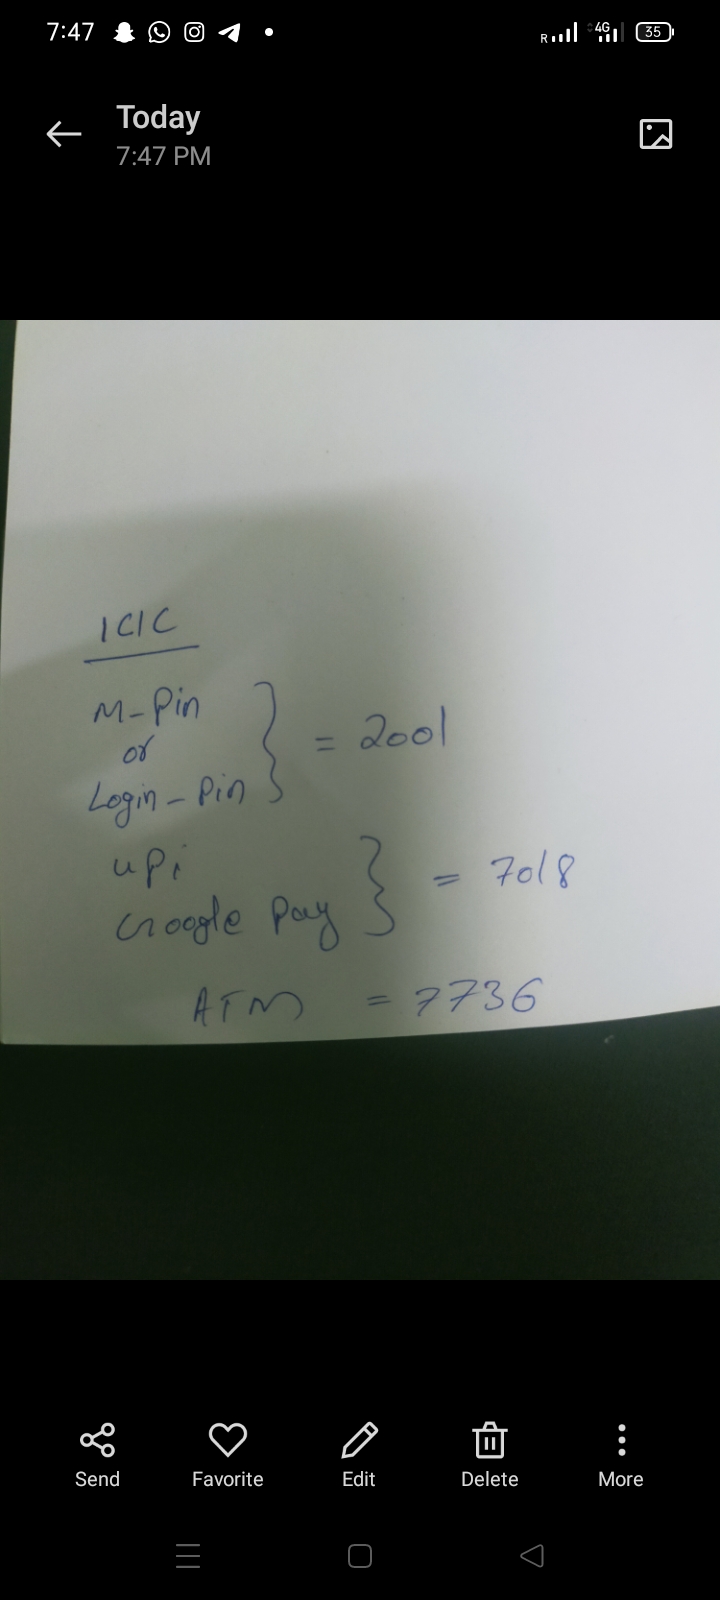 7:47
R 4G 35
Today
7:47 PM
ICIC
M-Pin
or
Login-Pin } = 2001
UPi
Google Pay } = 7018
ATM = 7736
Send Favorite Edit Delete More